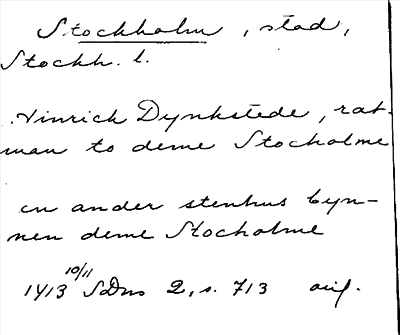 Stockholm, stad,
Stockh. l.
Hinrich Dynkstede, rat-
man to deme Stocholme
en ander stenhus byn-
nen deme Stocholme
1413 10/11 SDns 2, s. 713 orig.